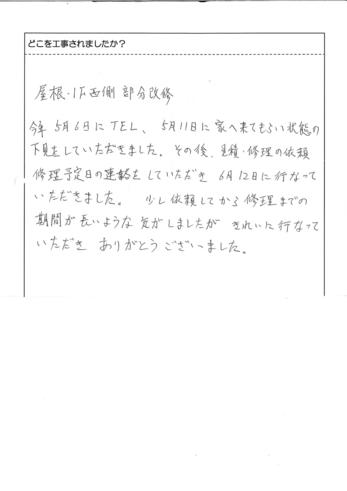 どこを工事されましたか?
屋根・1F西側 部分改修
今年 5月6日にTEL、5月11日に家へ来てもらい状態の
下見をしていただきました。その後、見積・修理の依頼
修理予定日の連絡をしていただき 6月12日に行なって
いただきました。 少し依頼してから修理までの
期間が長いような気がしましたが きれいに行なって
いただき ありがとうございました。